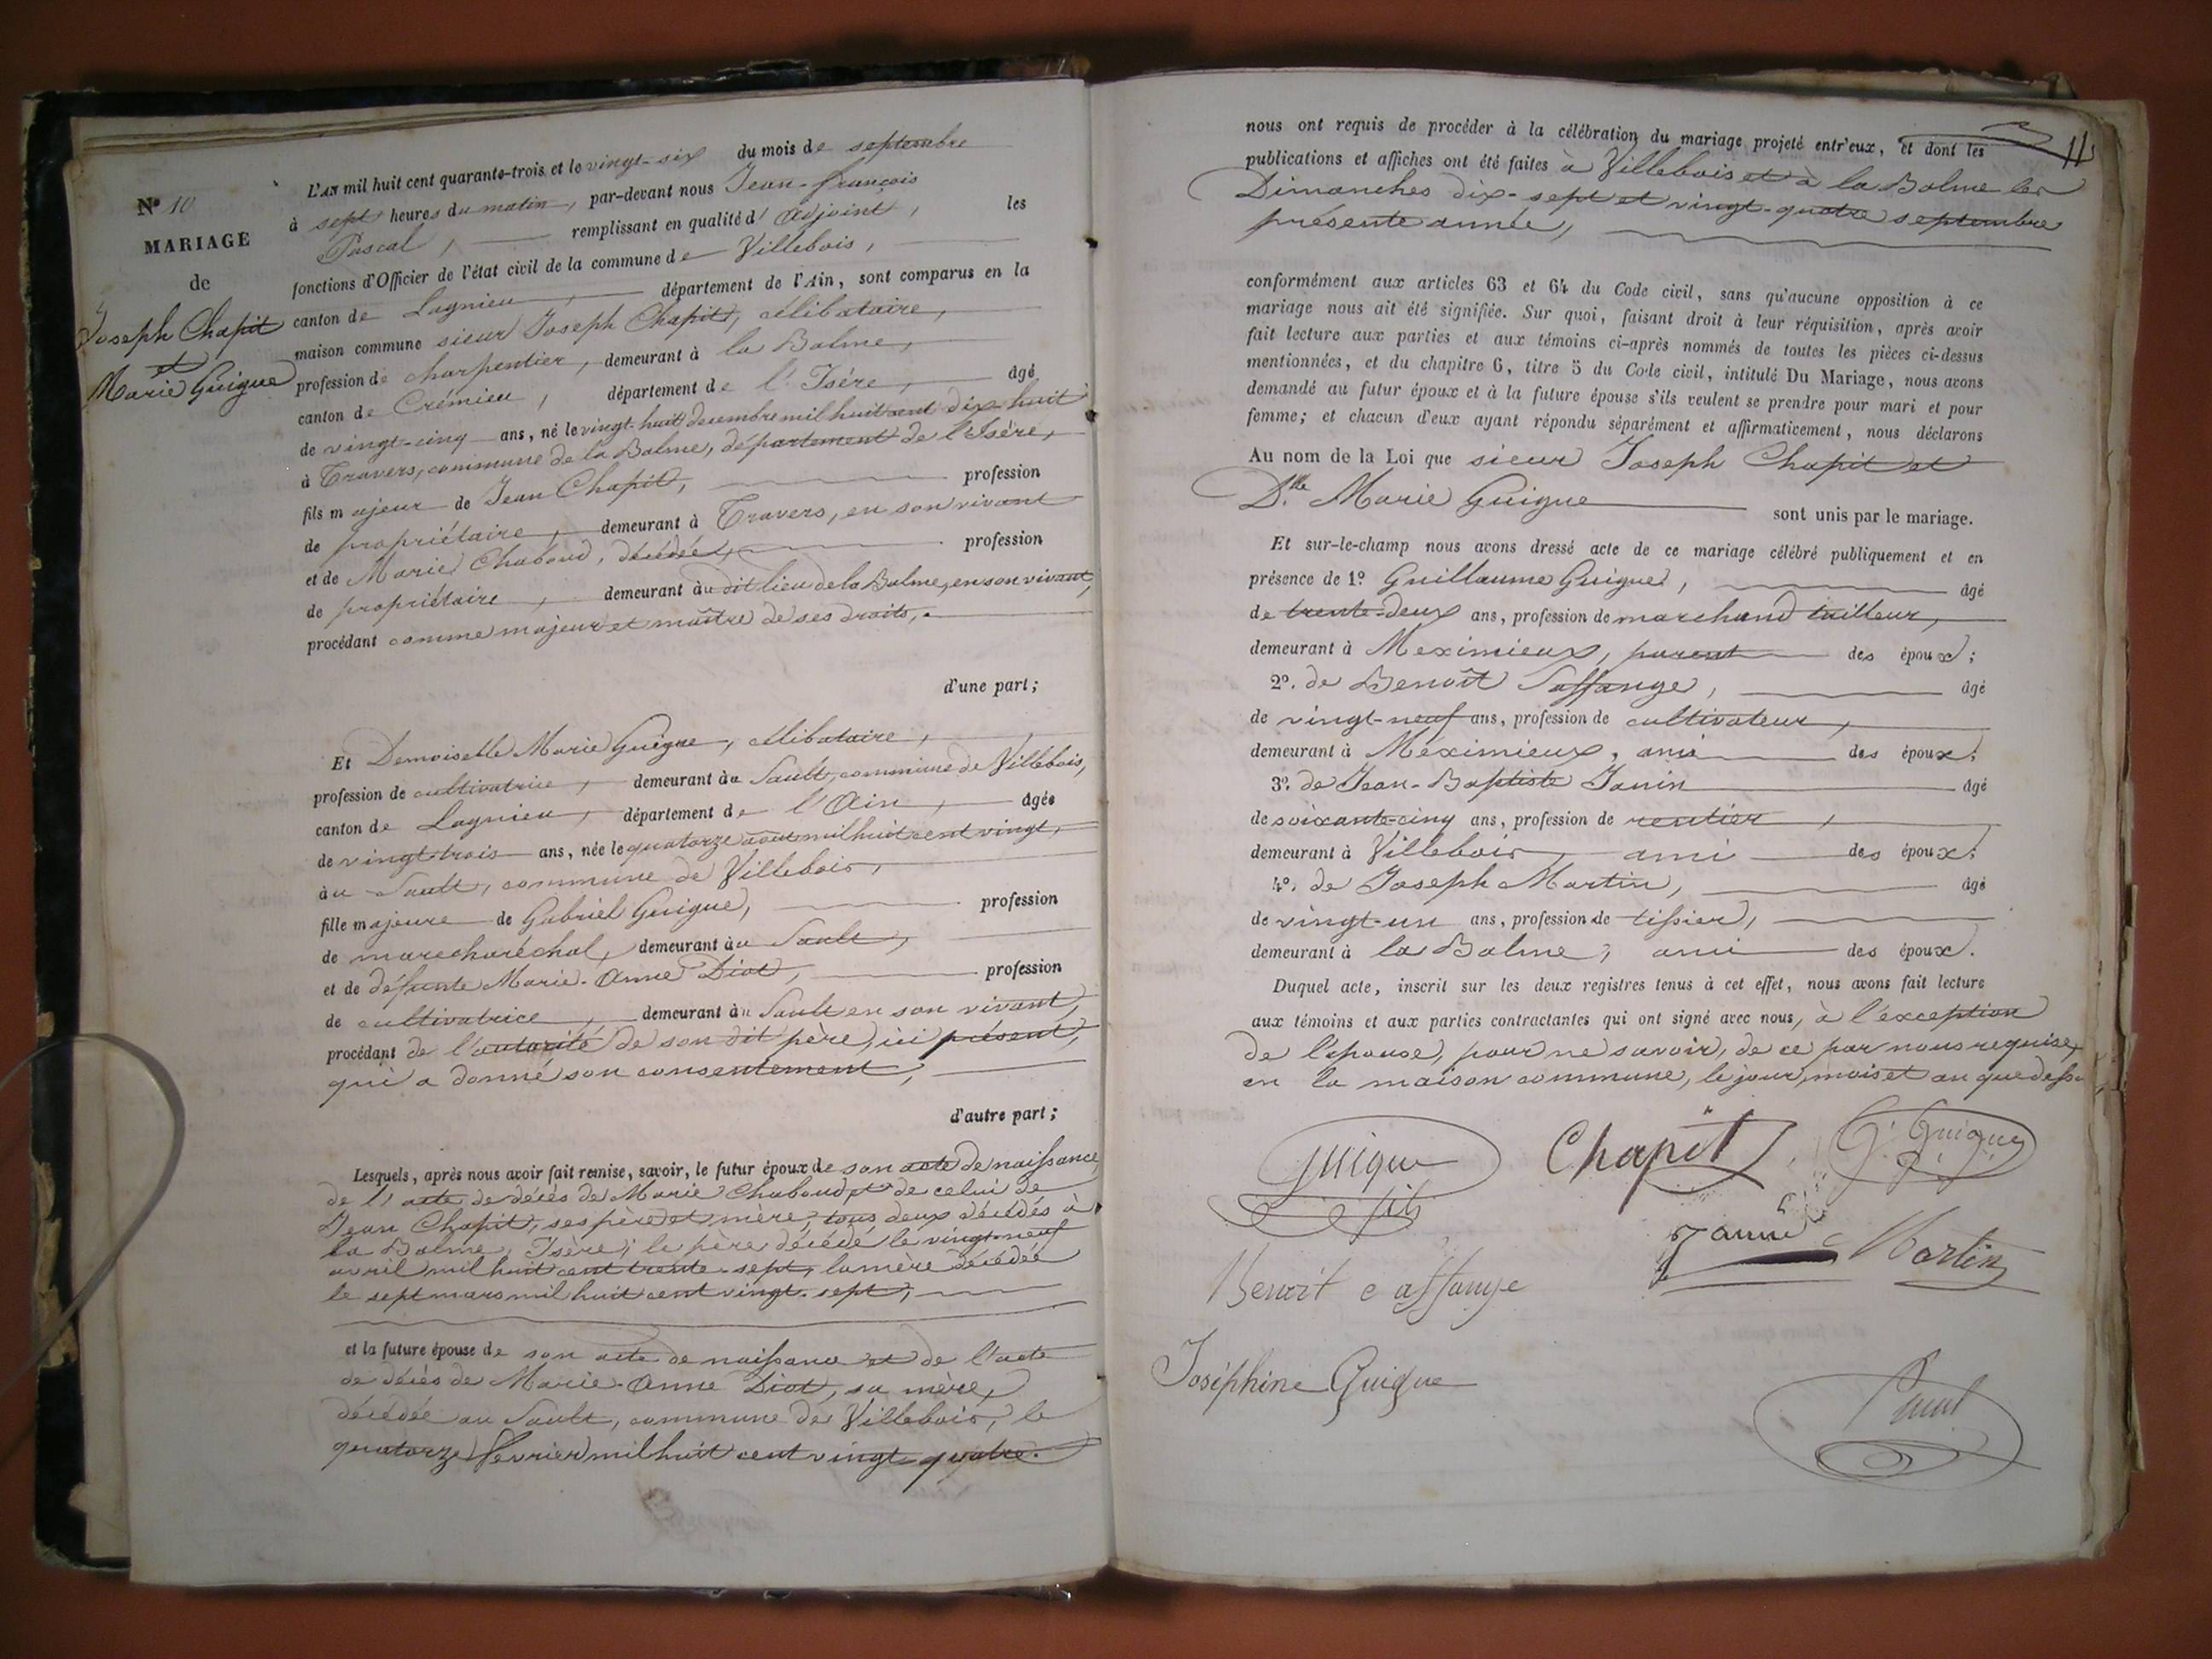 Nº 10
MARIAGE
de
Joseph Chapit
et
Marie Guigue
L'AN mil huit cent quarante-trois et le vingt-six du mois de septembre
à sept heures du matin, par-devant nous Jean-françois
Pascal, remplissant en qualité d'Adjoint, les
fonctions d'Officier de l'état civil de la commune de Villebois,
canton de Lagnieu, département de l'Ain, sont comparus en la
maison commune sieur Joseph Chapit, célibataire,
profession de charpentier, demeurant à la Balme,
canton de Crémieu, département de l'Isère, âgé
de vingt-cinq ans, né le vingt-huit decembre mil huit cent dix-huit
à Travers, commune de la Balme, département de l'Isère,
fils majeur de Jean Chapit, profession
de propriétaire, demeurant à Travers, en son vivant
et de Marie Chaboud, décédée, profession
de propriétaire, demeurant au dit lieu de la Balme, en son vivant,
procédant comme majeur et maître de ses droits,
d'une part;
Et Demoiselle Marie Guigue, célibataire,
profession de cultivatrice, demeurant au Sault, commune de Villebois,
canton de Lagnieu, département de l'Ain, âgée
de vingt-trois ans, née le quatorze aout mil huit cent vingt,
au Sault, commune de Villebois,
fille majeure de Gabriel Guigue, profession
de marecharéchal, demeurant au Sault,
et de défunte Marie-Anne Diot, profession
de cultivatrice, demeurant au Sault en son vivant,
procédant de l'autorité de son dit père, ici présent,
qui a donné son consentement,
d'autre part;
Lesquels, après nous avoir fait remise, savoir, le futur époux de son acte de naissance,
de l'acte de décès de Marie Chaboud et de celui de
Jean Chapit, ses père et mère, tous deux décédés à
la Balme, Isère; le père décédé le vingt-neuf
avril mil huit cent trente-sept, la mère décédée
le sept mars mil huit cent vingt-sept,
et la future épouse de son acte de naissance et de l'acte
de décès de Marie-Anne Diot, sa mère,
décédée au Sault, commune de Villebois, le
quatorze fevrier mil huit cent vingt-quatre.
11
nous ont requis de procéder à la célébration du mariage projeté entr'eux, et dont les
publications et affiches ont été faites à Villebois et à la Balme les
Dimanches dix-sept et vingt-quatre septembre
présente année,
conformément aux articles 63 et 64 du Code civil, sans qu'aucune opposition à ce
mariage nous ait été signifiée. Sur quoi, faisant droit à leur réquisition, après avoir
fait lecture aux parties et aux témoins ci-après nommés de toutes les pièces ci-dessus
mentionnées, et du chapitre 6, titre 5 du Code civil, intitulé Du Mariage, nous avons
demandé au futur époux et à la future épouse s'ils veulent se prendre pour mari et pour
femme; et chacun d'eux ayant répondu séparément et affirmativement, nous déclarons
Au nom de la Loi que sieur Joseph Chapit et
D.lle Marie Guigue sont unis par le mariage.
Et sur-le-champ nous avons dressé acte de ce mariage célébré publiquement et en
présence de 1º Guillaume Guigue, âgé
de trente-deux ans, profession de marchand tailleur,
demeurant à Meximieux, parent des époux;
2º. de Benoît Saffange, âgé
de vingt-neuf ans, profession de cultivateur,
demeurant à Méximieux, ami des époux;
3º. de Jean-Baptiste Janin âgé
de soixante-cinq ans, profession de rentier,
demeurant à Villebois, ami des époux;
4º. de Joseph Martin, âgé
de vingt-un ans, profession de tissier,
demeurant à la Balme, ami des époux.
Duquel acte, inscrit sur les deux registres tenus à cet effet, nous avons fait lecture
aux témoins et aux parties contractantes qui ont signé avec nous, à l'exception
de l'épouse, pour ne savoir, de ce par nous requise,
en la maison commune, le jour, mois et an que dessu
Guigue Chapit G. Guigue
fils
Janin Martin
Benoit Saffange
Joséphine Guigue